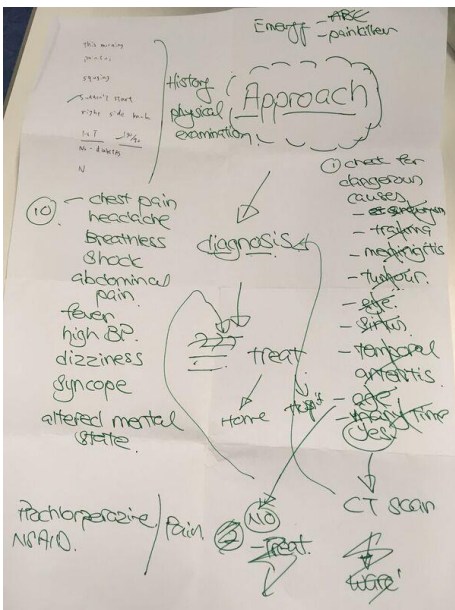 Emerg - ABC
- painkiller
this morning
squeezing
sudden start
right side
No - diabetes
N
History
physical
examination
Approach
① check for
dangerous
causes
- trauma
- meningitis
- tumour
- eye
- sinus
- temporal
arteritis
- age
Yes
CT scan
10 - chest pain
headache
Breathless
shock
abdominal
pain
fever
high BP
dizziness
syncope
altered mental
state
diagnosis
???
treat
Home
Hosp
NO
② - Treat
Prochlorperazine
NSAID
Pain